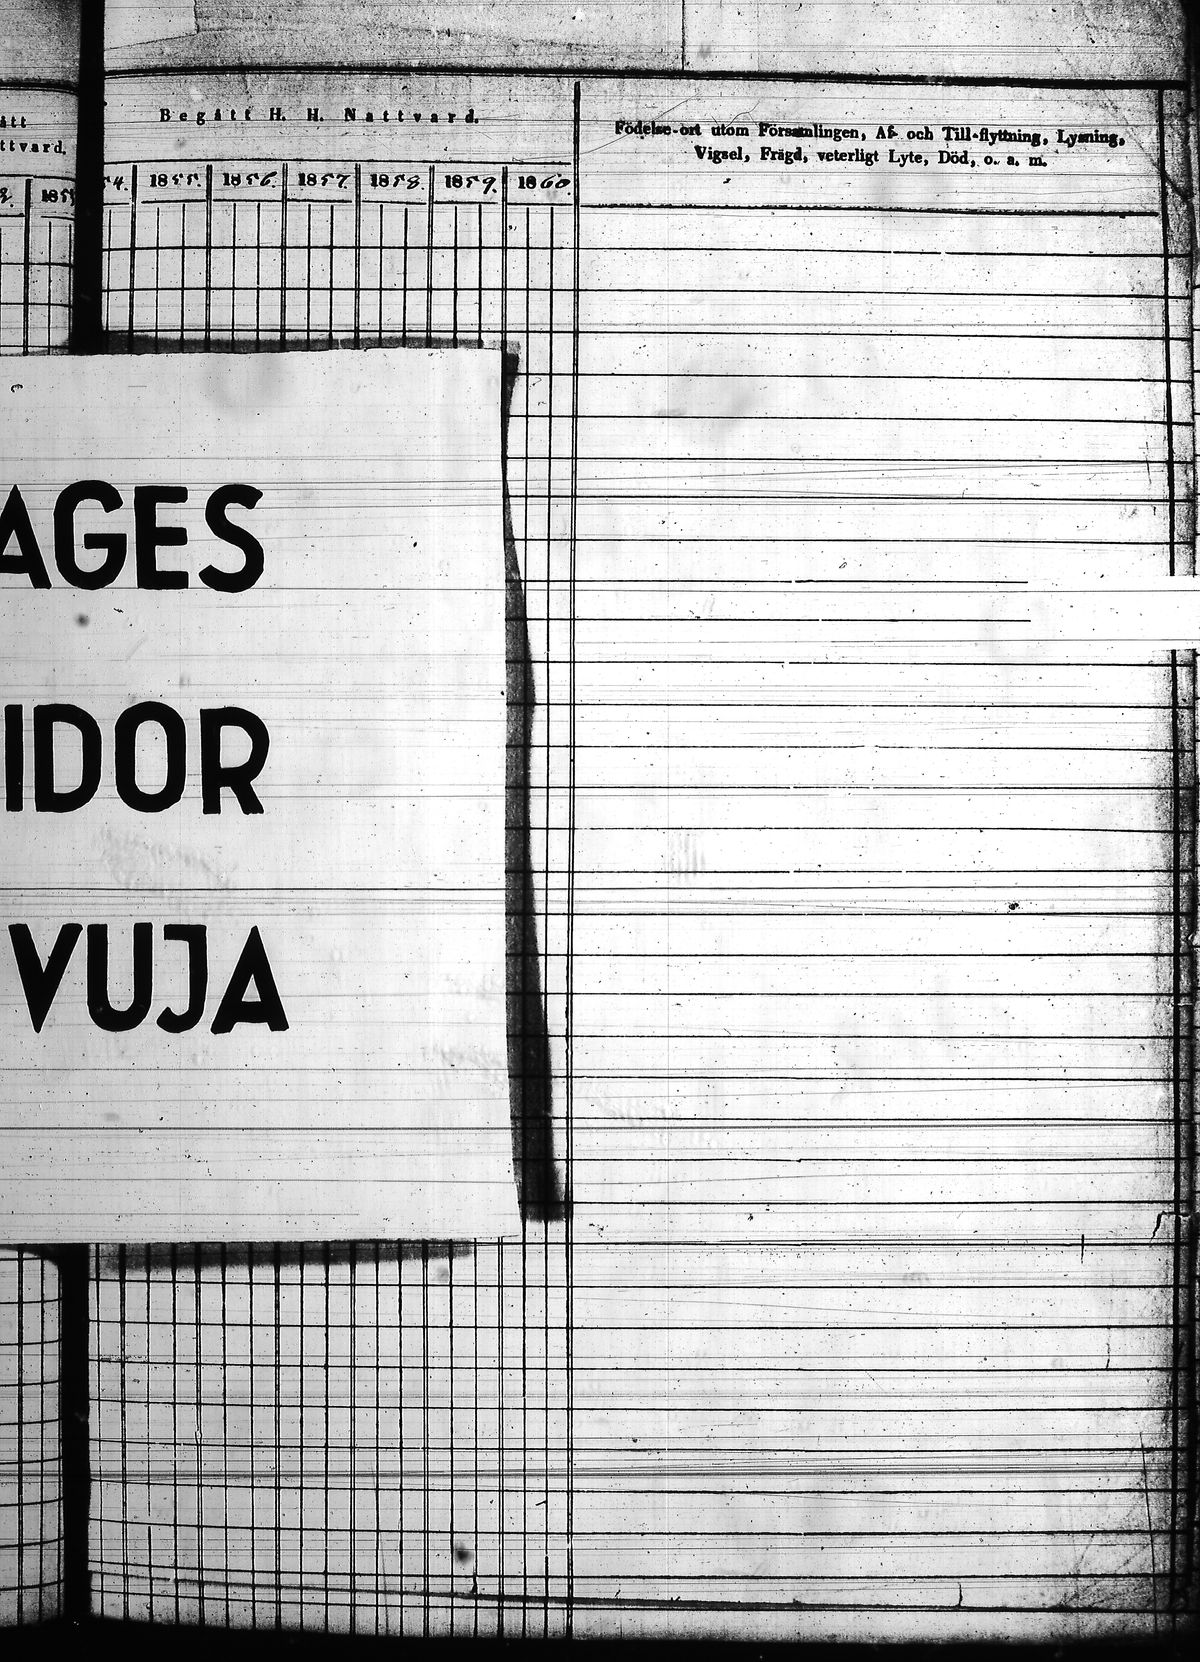 ått
ttvard.
2. 185
Begått H. H. Nattvard.
54. 1855. 1856. 1857. 1858. 1859. 1860.
Födelse-ort utom Församlingen, Af- och Till-flyttning, Lysning,
Vigsel, Frägd, veterligt Lyte, Död, o. a. m.
AGES
IDOR
VUJA